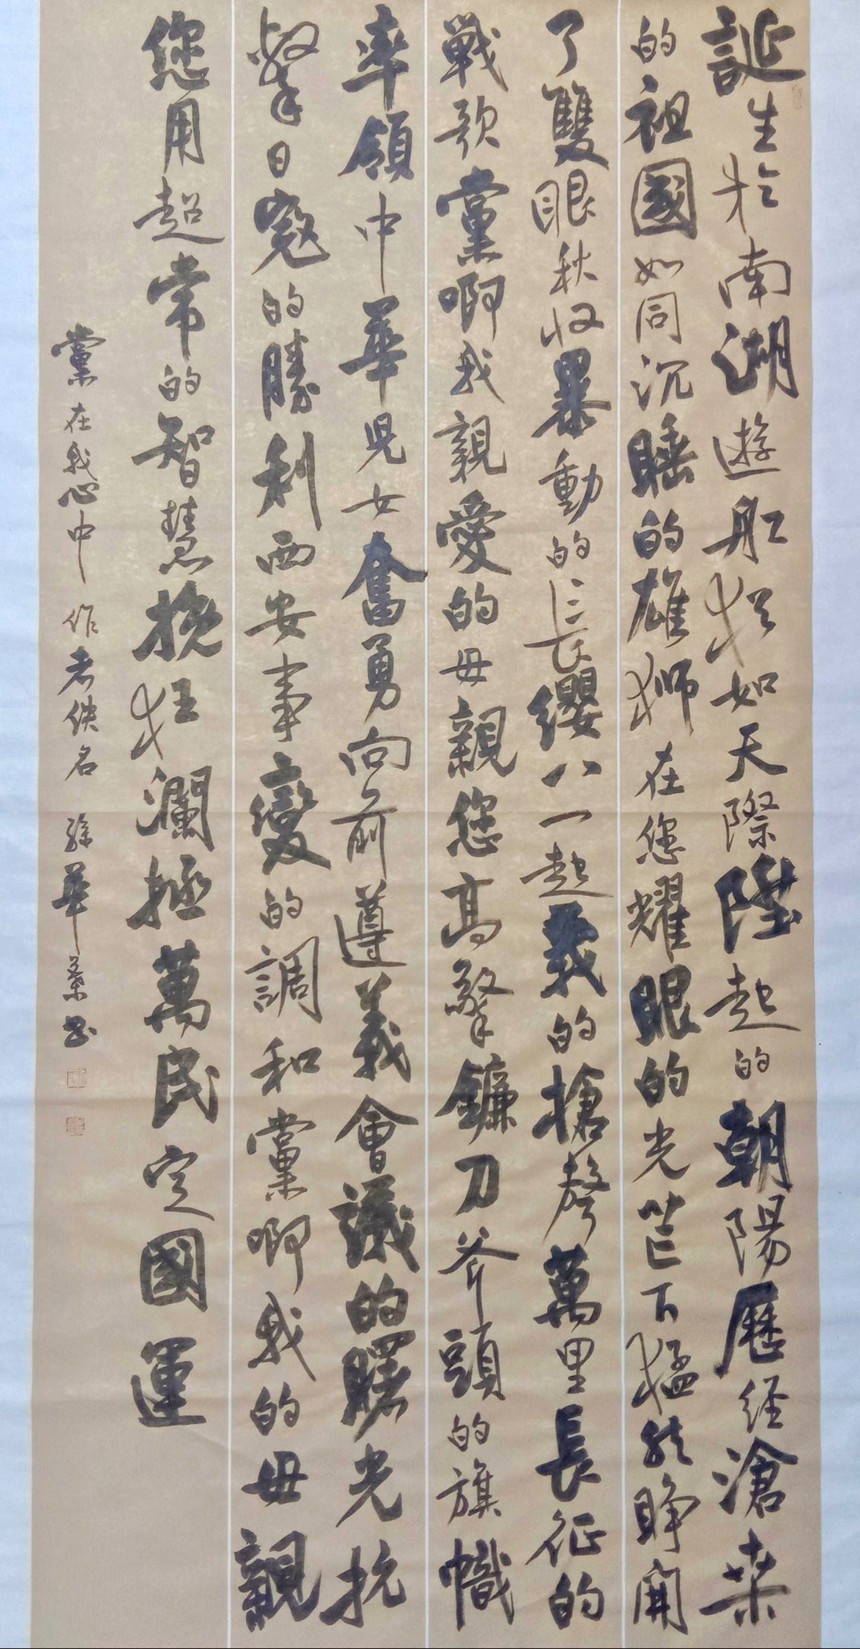 誕生於南湖遊船猶如天際陞起的朝陽歷經滄桑
的祖國如同沉睡的雄獅在您耀眼的光芒下猛然睜開
了雙眼秋收暴動的長纓八一起義的槍聲萬里長征的
戰歌黨啊我親愛的母親您高擎鐮刀斧頭的旗幟
率領中華兒女奮勇向前遵義會議的曙光抗
擊日寇的勝利西安事變的調和黨啊我的母親
您用超常的智慧挽狂瀾拯萬民定國運
黨在我心中 作者佚名 徐華 書